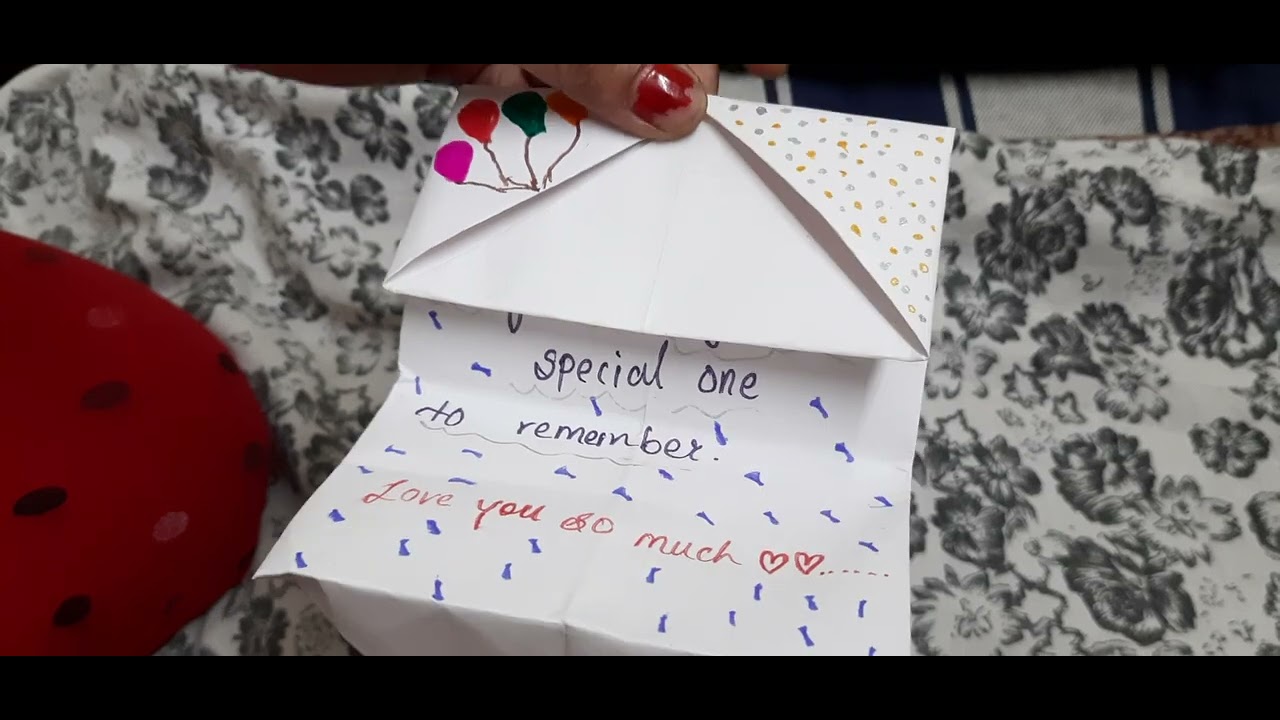 special one
to remember.
Love you so much ♡♡......